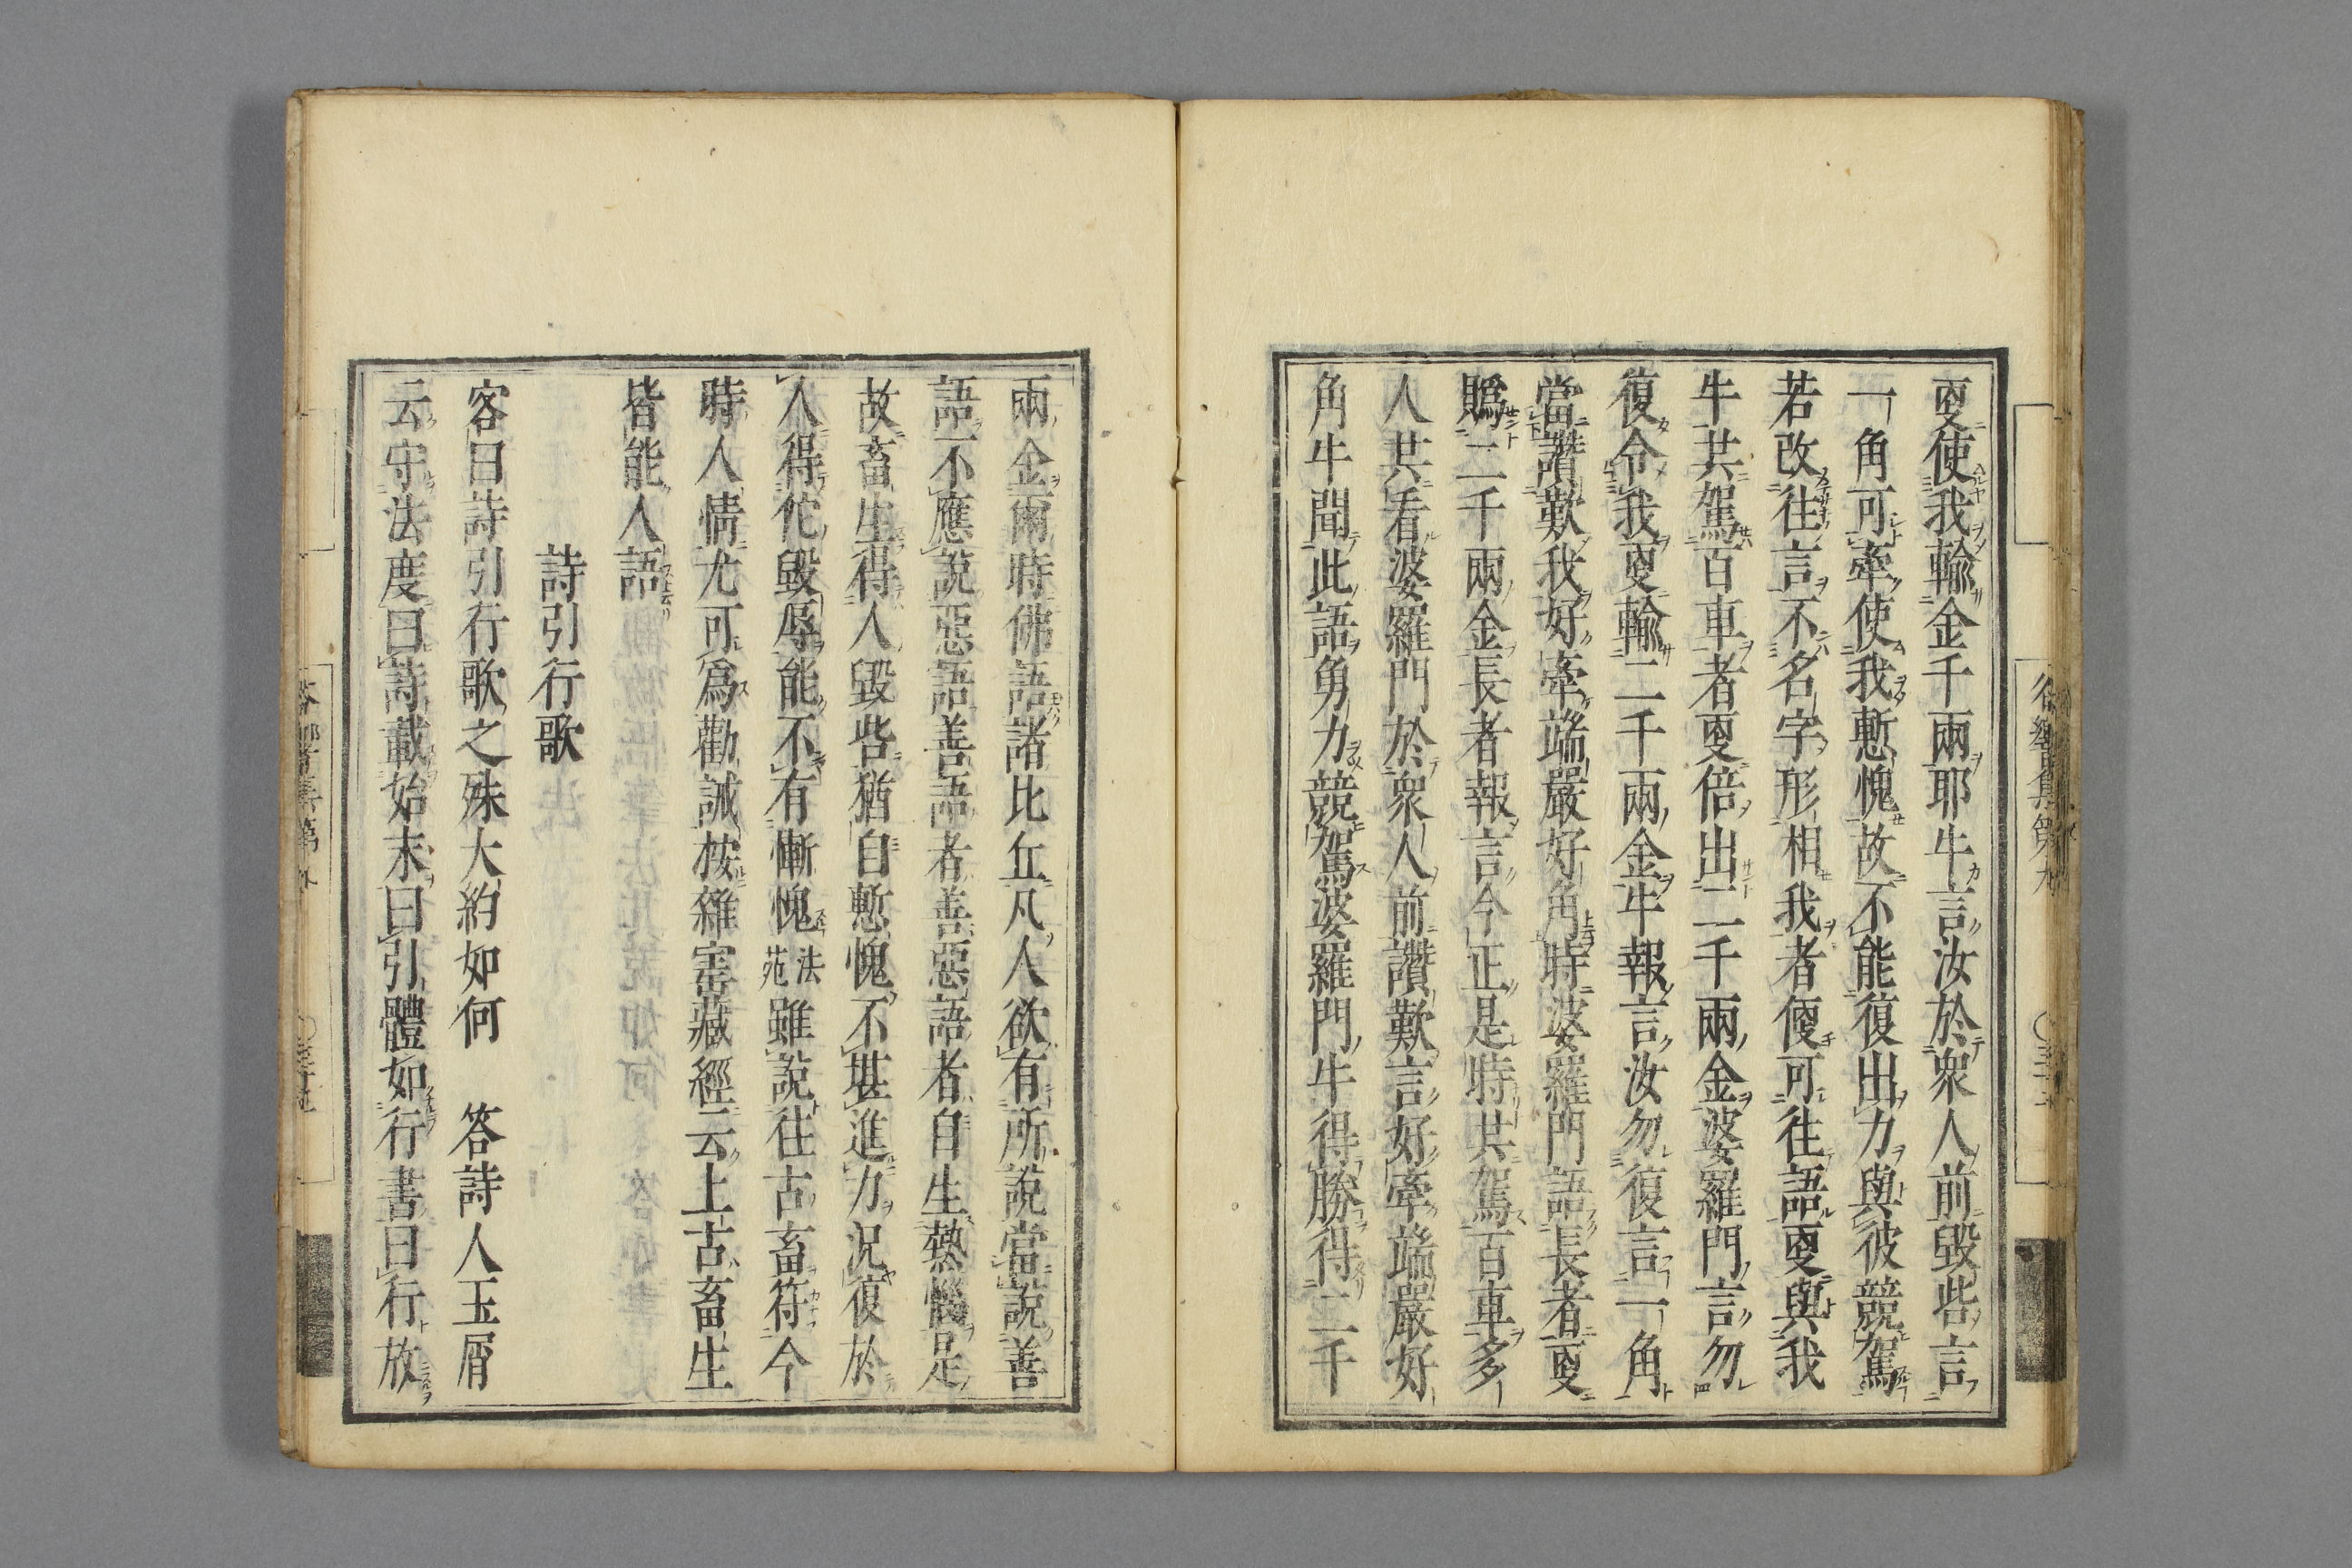 更使我輸金千兩耶牛言汝於衆人前毀呰言
一角可牽使我慙愧故不能復出力與彼競駕
若改往言不名字形相我者便可往語更與我
牛共駕百車者更倍出二千兩金婆羅門言勿
復令我更輸二千兩金牛報言汝勿復言一角
當讚歎我好牽端嚴好角時婆羅門語長者更
賭二千兩金長者報言今正是時共駕百車多
人共看婆羅門於衆人前讚歎言好牽端嚴好
角牛聞此語勇力競駕婆羅門牛得勝得二千
兩金爾時佛語諸比丘凡人欲有所說當說善
語不應說惡語善語者善惡語者自生熱惱是
故畜生得人毀呰猶自慙愧不堪進力況復於
人得佗毀辱能不有慚愧法苑雖說往古畜符今
時人情尤可爲勸誡按雜寶藏經云上古畜生
皆能人語
詩引行歌
客曰詩引行歌之殊大約如何　答詩人玉屑
云守法度曰詩載始末曰引體如行書曰行放